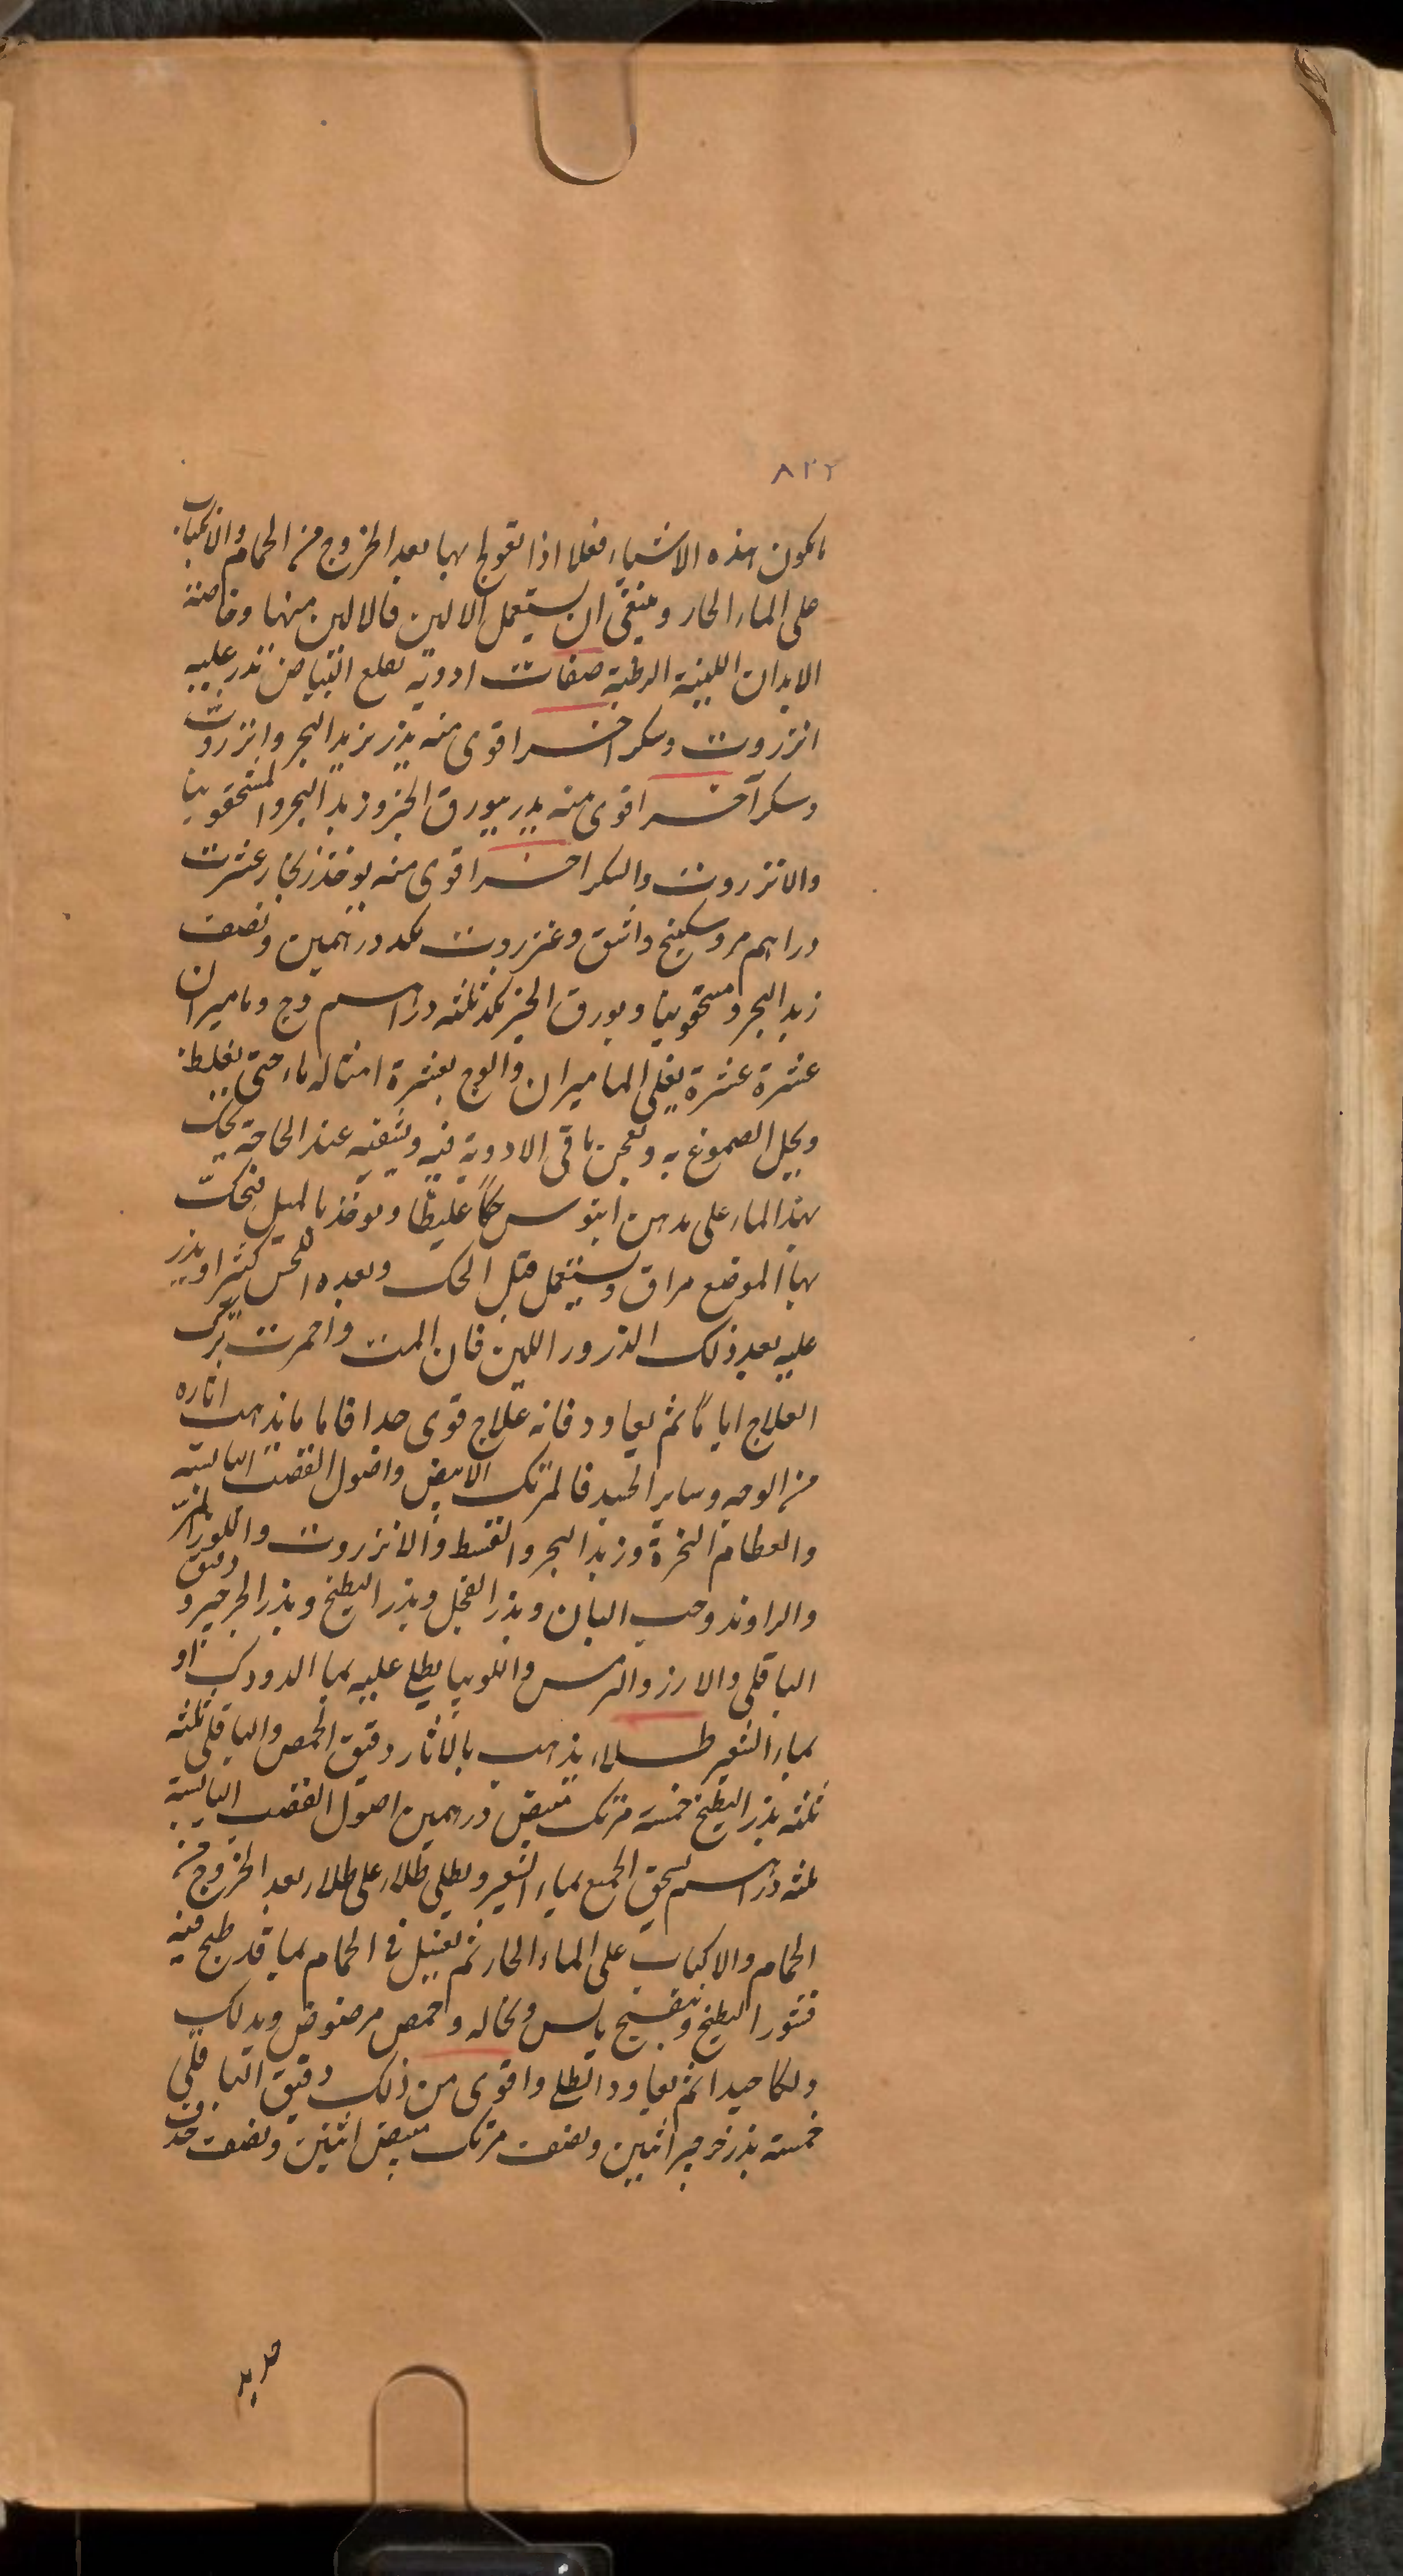 ٨٢٢
ما يكون هذه الاشياء فعلا اذا تعولج بها بعد الخروج من الحمام والانكباب
على الماء الحار وينبغى ان يستعمل الالين فالالين منها وخاصة
الابدان اللينة الرطبة صفات ادوية تقلع البياض تذر عليه
انزروت وسكر اخر اقوى منه يذر بزبد البحر وانزروت
وسكر آخر اقوى منه يذر ببورق الخبز وزبد البحر والمسحقونيا
والانزروت والسكر اخر اقوى منه يوخذ زنجار عشرة
دراهم مر وسكبينج واشق وعنزروت مكد درهمين ونصف
زبد البحر ومسحقونيا وبورق الخبز مكد ثلثه دراهم وج وماميران
عشرة عشرة يغلى الماميران والوج بعشرة امثاله ماء حتى يغلظ
ويحل الصموغ به وتعجن باقى الادوية فيه ويشفيه عند الحاجة يحك
بهذا الماء على مدهن ابنوس حكا غليظا ويوخذ بالميل فيحك
بها الموضع مراق ويستعمل قبل الحك وبعده اللحس كثيرا ويذر
عليه بعد ذلك الذرور اللين فان المت واحمرت ترك
العلاج اياما ثم يعاود فانه علاج قوى جدا فاما ما يذهب اثاره
من الوجه وساير الجسد فالمرتك الابيض واصول القصب اليابسة
والعظام النخرة وزبد البحر والقسط والانزروت واللوز المر
والراوند وحب البان وبذر الفجل وبذر البطيخ وبذر الجرجير ودقيق
الباقلى والارز والترمس واللوبيا يطلى عليه بما الدودك او
بماء الشعير طلاء يذهب بالاثار دقيق الحمص والباقلى ثلثه
ثلثه بذر البطيخ خمسة مرتك مبيض درهمين اصول القصب اليابسة
ثلثه دراهم يسحق الجميع بماء الشعير ويطلى طلاء على طلاء بعد الخروج من
الحمام والاكباب على الماء الحار ثم يغسل فى الحمام بما قد طبخ فيه
قشور البطيخ وبنفسج يابس ونخاله وحمص مرضوض ويدلك
دلكا جيدا ثم يعاود الطلى واقوى من ذلك دقيق الباقلى
خمسة بذر جرجير اثنين ونصف مرتك مبيض اثنين ونصف خذف